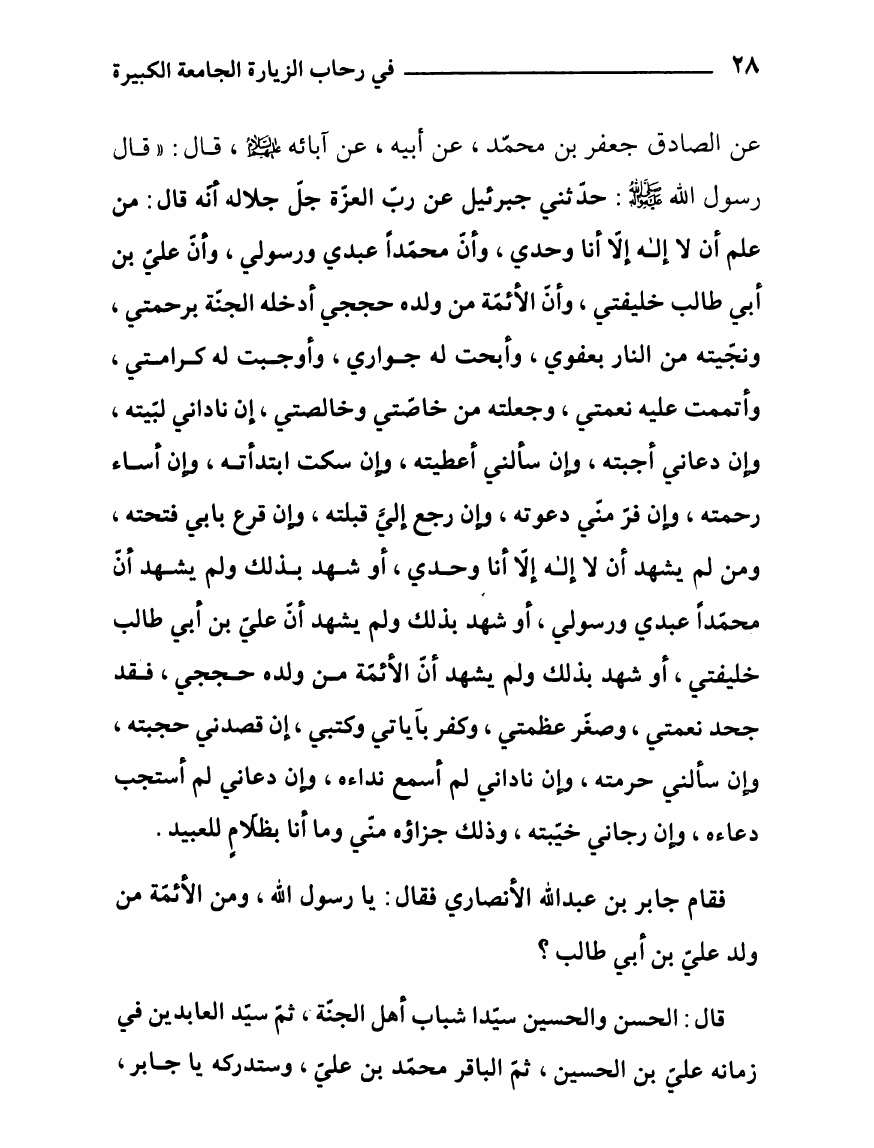 ٢٨ في رحاب الزيارة الجامعة الكبيرة
عن الصادق جعفر بن محمّد ، عن أبيه ، عن آبائه عليهم السلام ، قال : « قال
رسول الله ﷺ : حدّثني جبرئيل عن ربّ العزّة جلّ جلاله أنّه قال : من
علم أن لا إلٰه إلّا أنا وحدي ، وأنّ محمّداً عبدي ورسولي ، وأنّ عليّ بن
أبي طالب خليفتي ، وأنّ الأئمّة من ولده حججي أدخله الجنّة برحمتي ،
ونجّيته من النار بعفوي ، وأبحت له جواري ، وأوجبت له كرامتي ،
وأتممت عليه نعمتي ، وجعلته من خاصّتي وخالصتي ، إن ناداني لبّيته ،
وإن دعاني أجبته ، وإن سألني أعطيته ، وإن سكت ابتدأته ، وإن أساء
رحمته ، وإن فرّ منّي دعوته ، وإن رجع إليَّ قبلته ، وإن قرع بابي فتحته ،
ومن لم يشهد أن لا إلٰه إلّا أنا وحدي ، أو شهد بذلك ولم يشهد أنّ
محمّداً عبدي ورسولي ، أو شهد بذلك ولم يشهد أنّ عليّ بن أبي طالب
خليفتي ، أو شهد بذلك ولم يشهد أنّ الأئمّة من ولده حججي ، فقد
جحد نعمتي ، وصغّر عظمتي ، وكفر بآياتي وكتبي ، إن قصدني حجبته ،
وإن سألني حرمته ، وإن ناداني لم أسمع نداءه ، وإن دعاني لم أستجب
دعاءه ، وإن رجاني خيّبته ، وذلك جزاؤه منّي وما أنا بظلّامٍ للعبيد .
فقام جابر بن عبدالله الأنصاري فقال : يا رسول الله ، ومن الأئمّة من
ولد عليّ بن أبي طالب ؟
قال : الحسن والحسين سيّدا شباب أهل الجنّة ، ثمّ سيّد العابدين في
زمانه عليّ بن الحسين ، ثمّ الباقر محمّد بن عليّ ، وستدركه يا جابر ،